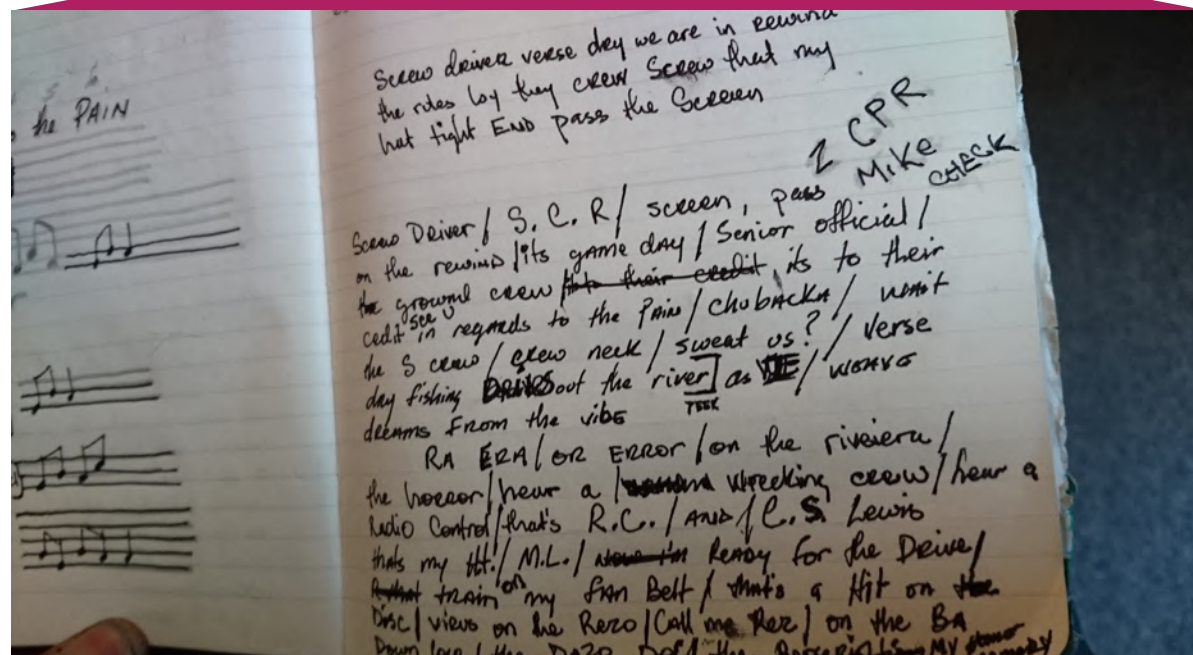 the PAIN
Screw driver verse day we are in rewind
the rules by they crew Screw that my
hat tight END pass the Screen
2 CPR
MiKe
CHECK
Screw Driver / S.C.R / screen, pass
on the rewind / its game day / Senior official /
ground crew its to their
cedit see u in regards to the PAIN / chubacka / wait
the S crew / crew neck / sweat us? / Verse
day fishing out the river as / WEAVE
dreams From the vibe
RA ERA / OR ERROR / on the riveiera /
the horror / hear a / wrecking crew / hear a
Radio Control / that's R.C. / AND / C.S. Lewis
thats my / M.L. / Ready for the Drive /
train on my FAN Belt / that's a Hit on the
Disc / views on the Rezo / Call me Rez / on the BA
Down low / the